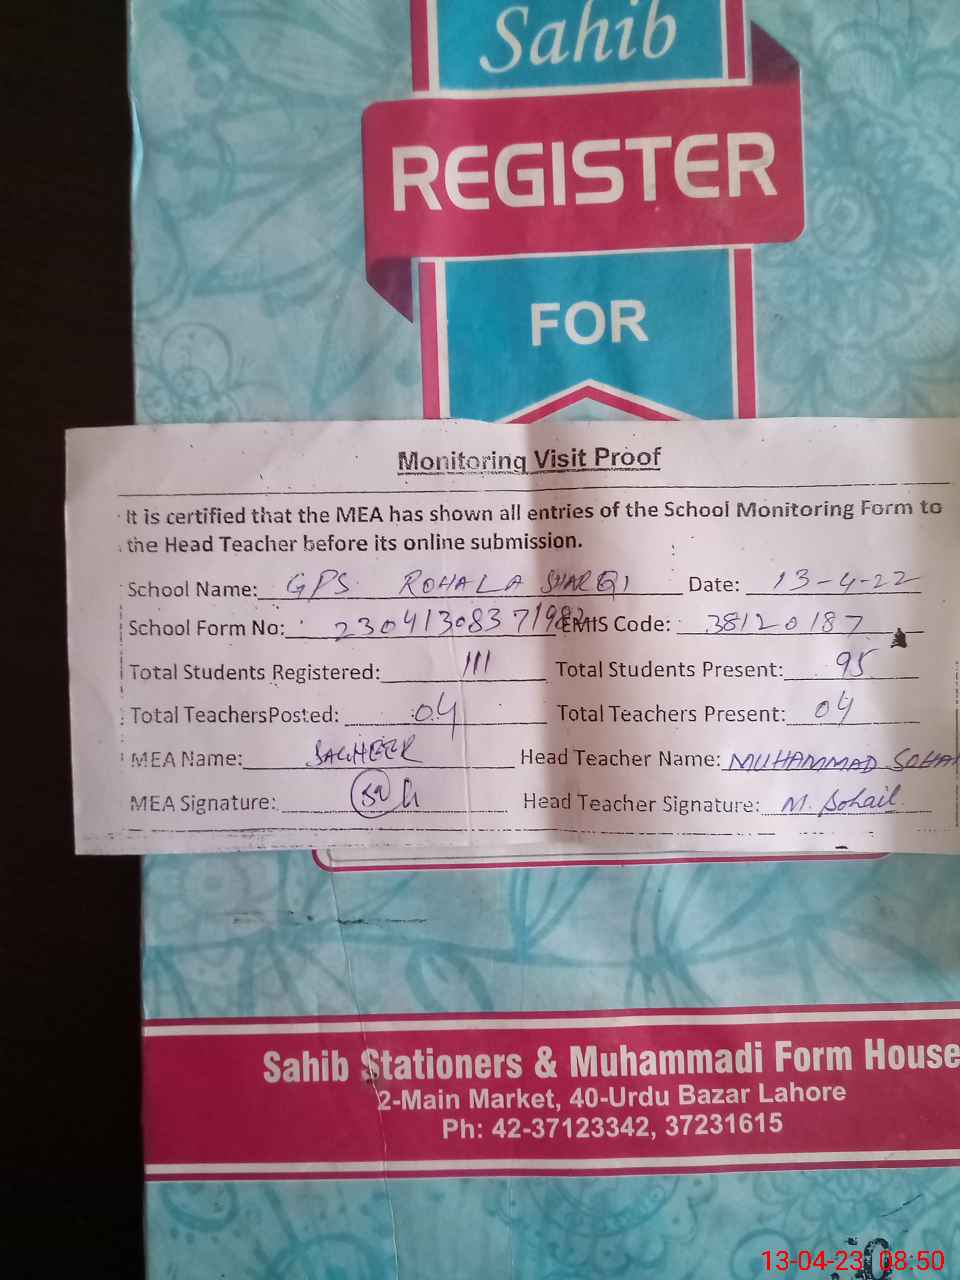 Sahib
REGISTER
FOR
Monitoring Visit Proof
It is certified that the MEA has shown all entries of the School Monitoring Form to
the Head Teacher before its online submission.
School Name: GPS ROHALA SHARQI Date: 13-4-22
School Form No: EMIS Code: 38120187
Total Students Registered: 111 Total Students Present: 95
Total TeachersPosted: 04 Total Teachers Present: 04
MEA Name: SAGHEER Head Teacher Name: MUHAMMAD SOHAI
MEA Signature: Head Teacher Signature: M. Sohail
Sahib Stationers & Muhammadi Form House
2-Main Market, 40-Urdu Bazar Lahore
Ph: 42-37123342, 37231615
13-04-23 08:50